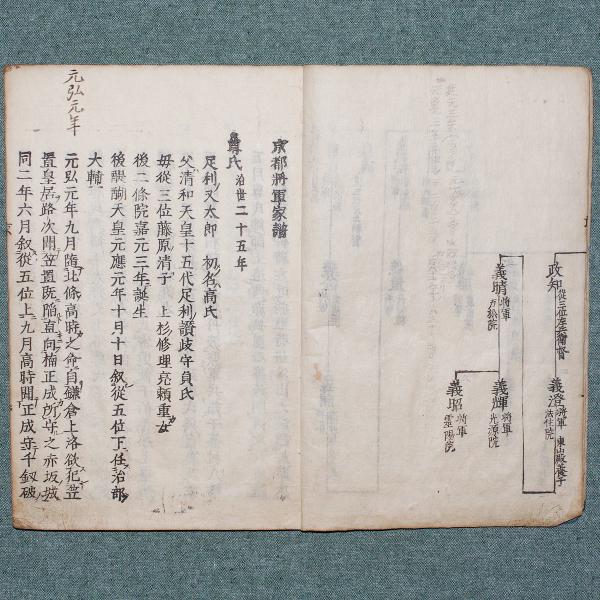 政知 従三位左兵衛督
義澄 将軍 法住院 東山殿養子
義晴 将軍 万松院
義輝 将軍 光源院
義昭 将軍 霊陽院
京都將軍家譜
尊氏 治世二十五年
足利又太郎 初名高氏
父清和天皇十五代足利讃岐守貞氏
母從三位藤原清子 上杉修理亮頼重女
後二條院嘉元三年誕生
後醍醐天皇元應元年十月十日叙從五位下任治部
大輔
元弘元年九月隨北條高時之命自鎌倉上洛欲犯笠
置皇居路次聞笠置既陥直向楠正成所守之赤坂城
同二年六月叙從五位上九月高時聞正成守千釼破
元弘元年